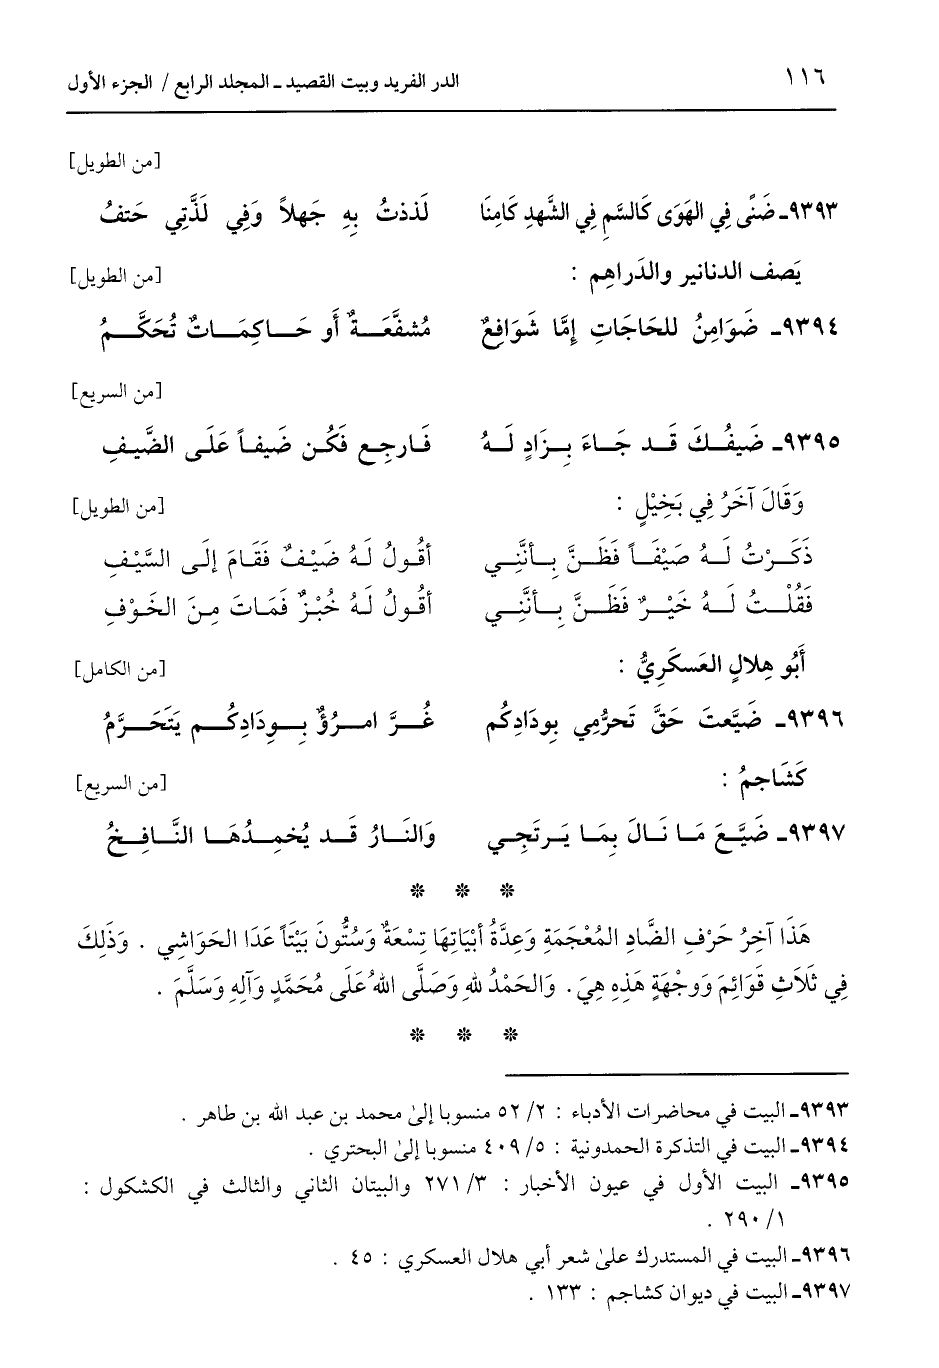 ١١٦ الدر الفريد وبيت القصيد ـ المجلد الرابع / الجزء الأول
[من الطويل]
٩٣٩٣ـ ضَنًى فِي الهَوَى كَالسَّمِ فِي الشَّهدِ كَامِنَا لَذذتُ بِهِ جَهلاً وَفِي لَذَّتِي حَتفُ
يَصف الدنانير والدَراهِم : [من الطويل]
٩٣٩٤ـ ضَوَامِنُ للحَاجَاتِ إمَّا شَوَافِعٌ مُشفَّعَةٌ أَو حَاكِمَاتٌ تُحَكَّمُ
[من السريع]
٩٣٩٥ـ ضَيفُكَ قَد جَاءَ بِزَادٍ لَهُ فَارجِع فَكُن ضَيفاً عَلَى الضَّيفِ
وَقَالَ آخَرُ فِي بَخِيْلٍ : [من الطويل]
ذَكَرْتُ لَهُ ضَيْفَاً فَظَنَّ بِأنَّنِي أقُولُ لَهُ ضَيْفٌ فَقَامَ إلَى السَّيْفِ
فَقُلْتُ لَهُ خَيْرٌ فَظَنَّ بِأنَّنِي أقُولُ لَهُ خُبْزٌ فَمَاتَ مِنَ الخَوْفِ
أَبُو هِلالٍ العَسكَرِيُّ : [من الكامل]
٩٣٩٦ـ ضَيَّعتَ حَقَّ تَحرُّمِي بِودَادِكُم غُرَّ امرُؤٌ بِودَادِكُم يَتَحَرَّمُ
كَشَاجمُ : [من السريع]
٩٣٩٧ـ ضَيَّعَ مَا نَالَ بِمَا يَرتَجِي وَالنَارُ قَد يُخمِدُهَا النَّافِخُ
* * *
هَذَا آخِرُ حَرْفِ الضَّادِ المُعْجَمَةِ وَعِدَّةُ أبْيَاتِهَا تِسْعَةٌ وَسُتُّونَ بَيْتَاً عَدَا الحَوَاشِي . وَذَلِكَ
فِي ثَلَاثِ قَوَائِمَ وَوِجْهَةٍ هَذِهِ هِيَ . وَالحَمْدُ للهِ وَصَلَّى اللهُ عَلَى مُحَمَّدٍ وَآلِهِ وَسَلَّمَ .
* * *
٩٣٩٣ـ البيت في محاضرات الأدباء : ٢/ ٥٢ منسوبا إلىٰ محمد بن عبد الله بن طاهر .
٩٣٩٤ـ البيت في التذكرة الحمدونية : ٥/ ٤٠٩ منسوبا إلىٰ البحتري .
٩٣٩٥ـ البيت الأول في عيون الأخبار : ٣/ ٢٧١ والبيتان الثاني والثالث في الكشكول :
١/ ٢٩٠ .
٩٣٩٦ـ البيت في المستدرك علىٰ شعر أبي هلال العسكري : ٤٥ .
٩٣٩٧ـ البيت في ديوان كشاجم : ١٣٣ .